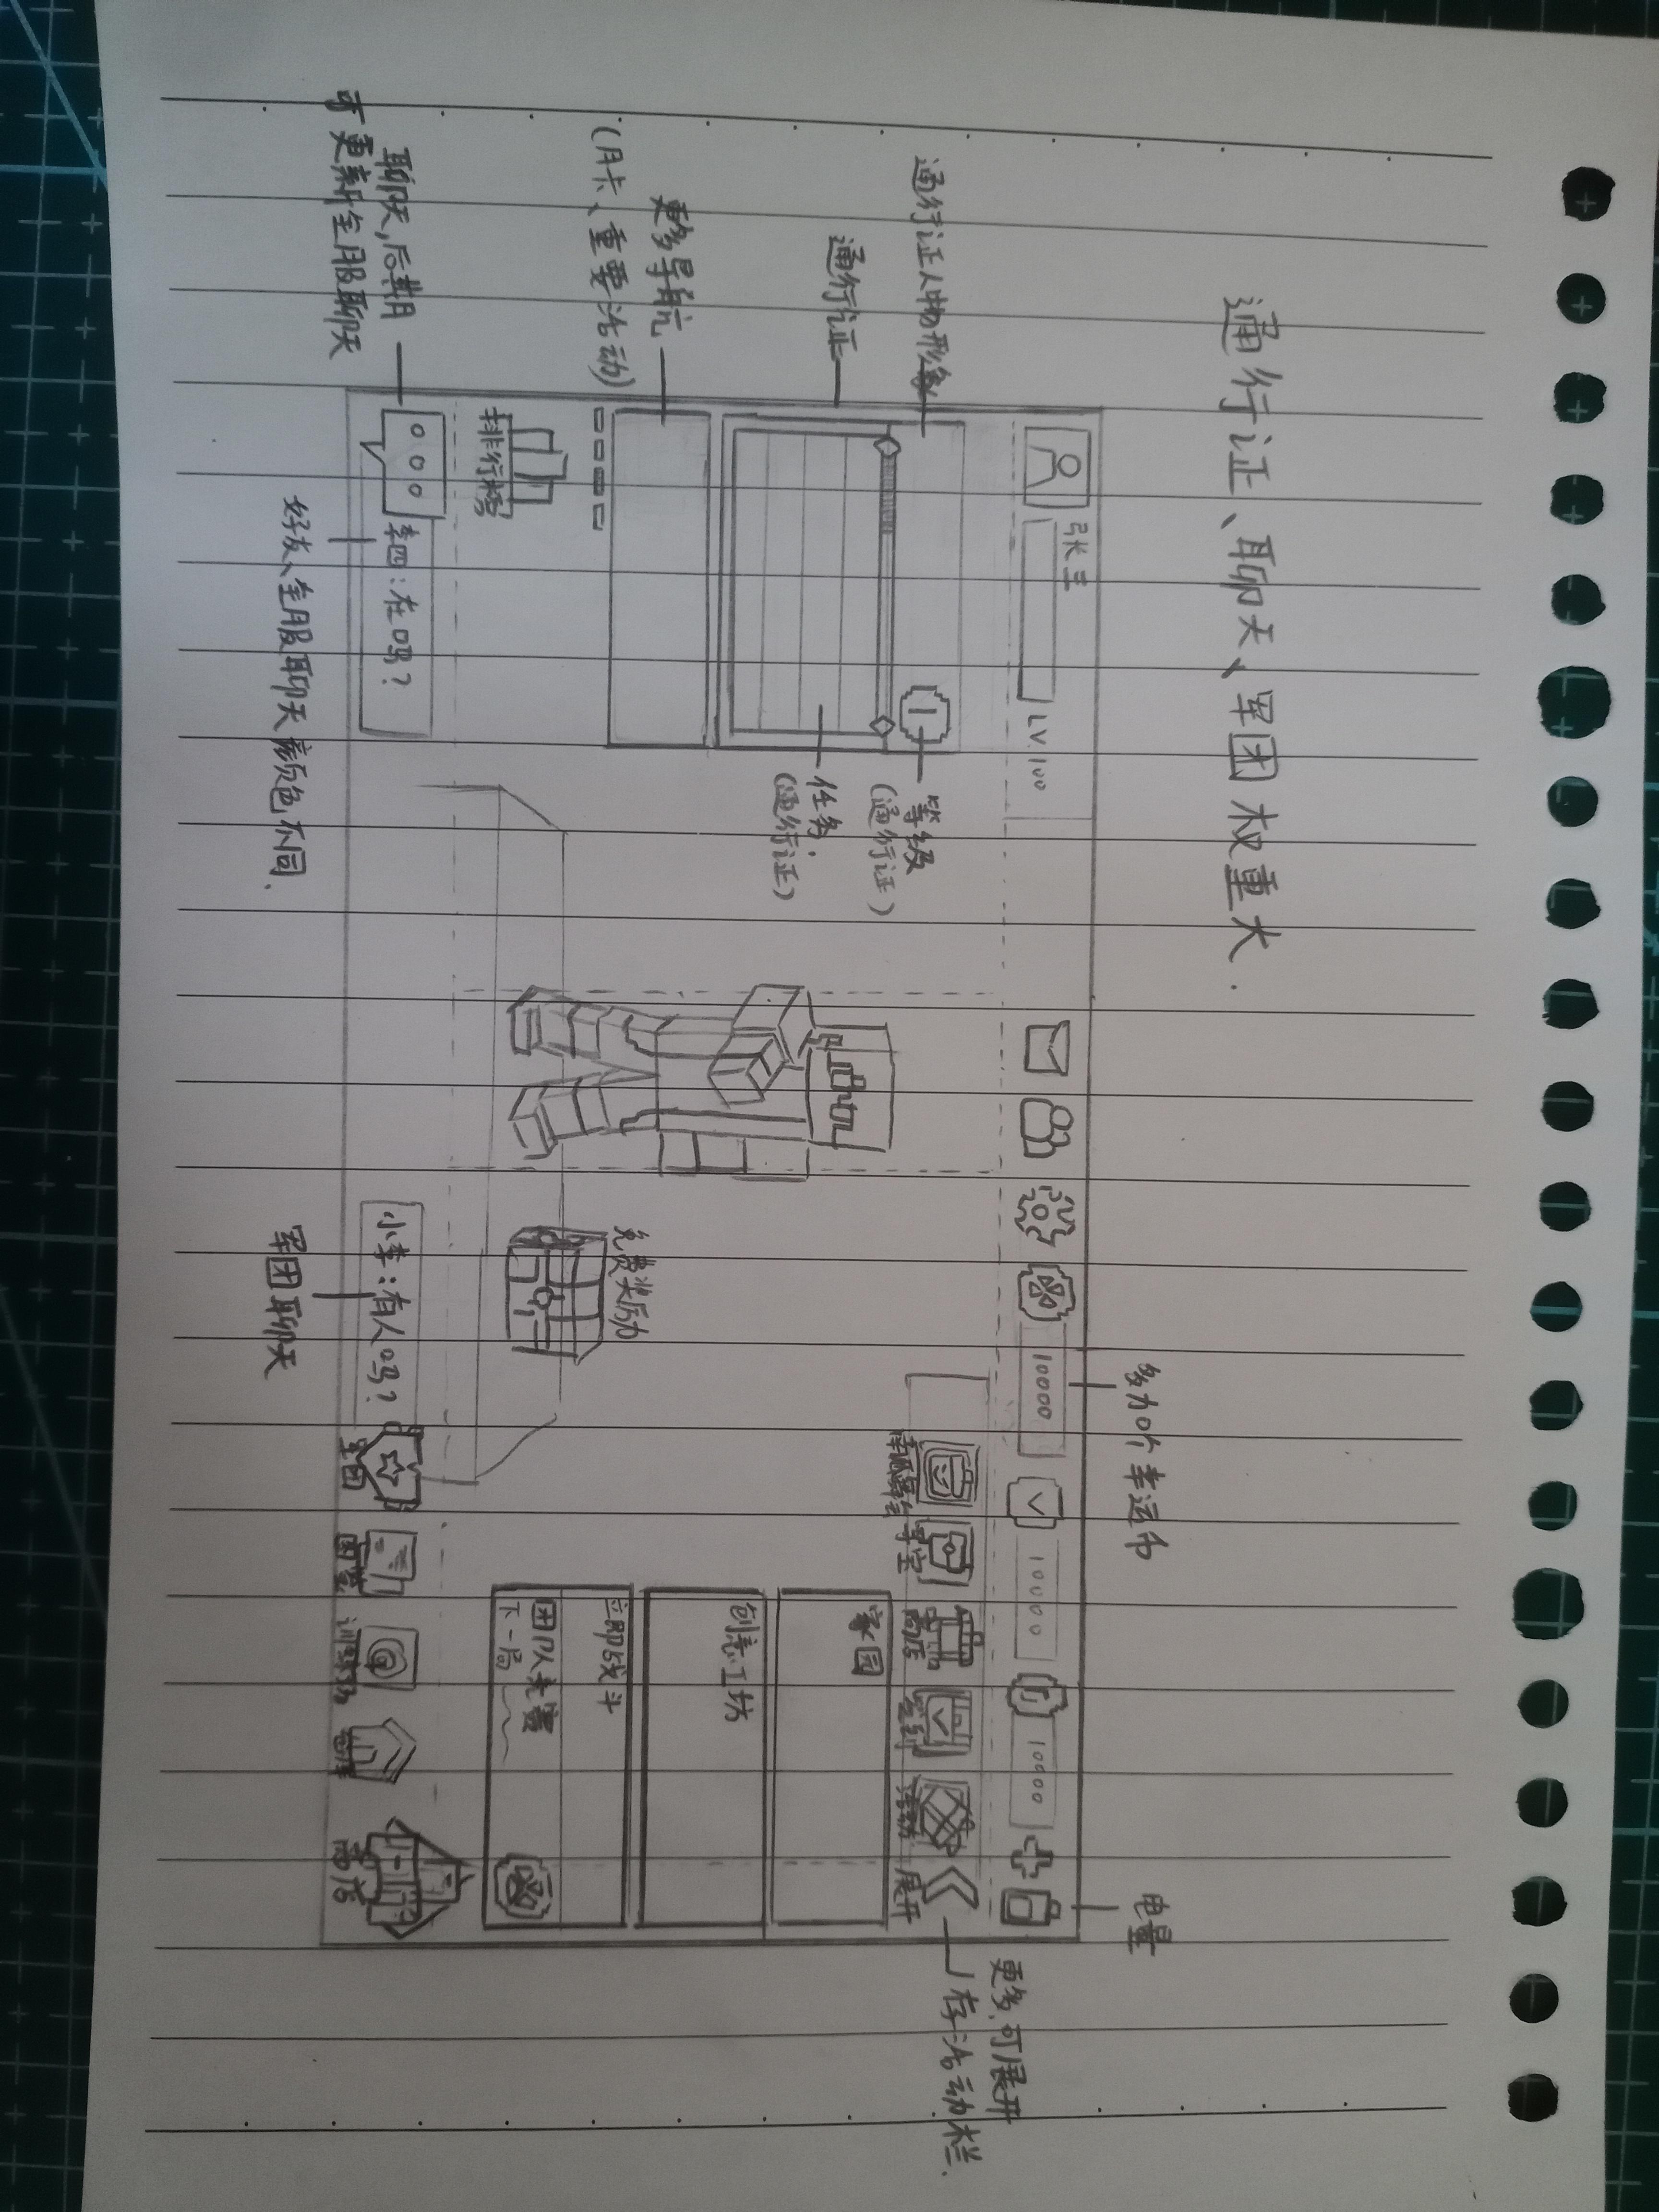 通行证、聊天、军团权重大.
多加个幸运币
电量
张三
LV.100
10000
10000
10000
通行证人物形象
通行证
更多导航
(月卡、重要活动)
等级
(通行证)
任务.
(通行证)
寻宝
商店
签到
活动
展开
更多,可展开
1存活动栏.
家园
创意工坊
立即战斗
团队竞赛
下一局
免费奖历力
排行榜
聊天,后期
可更新全服聊天
李四:在吗?
小李:有人吗?
军团
图鉴
训练场
仓库
商店
好友、全服聊天颜色不同.
军团聊天